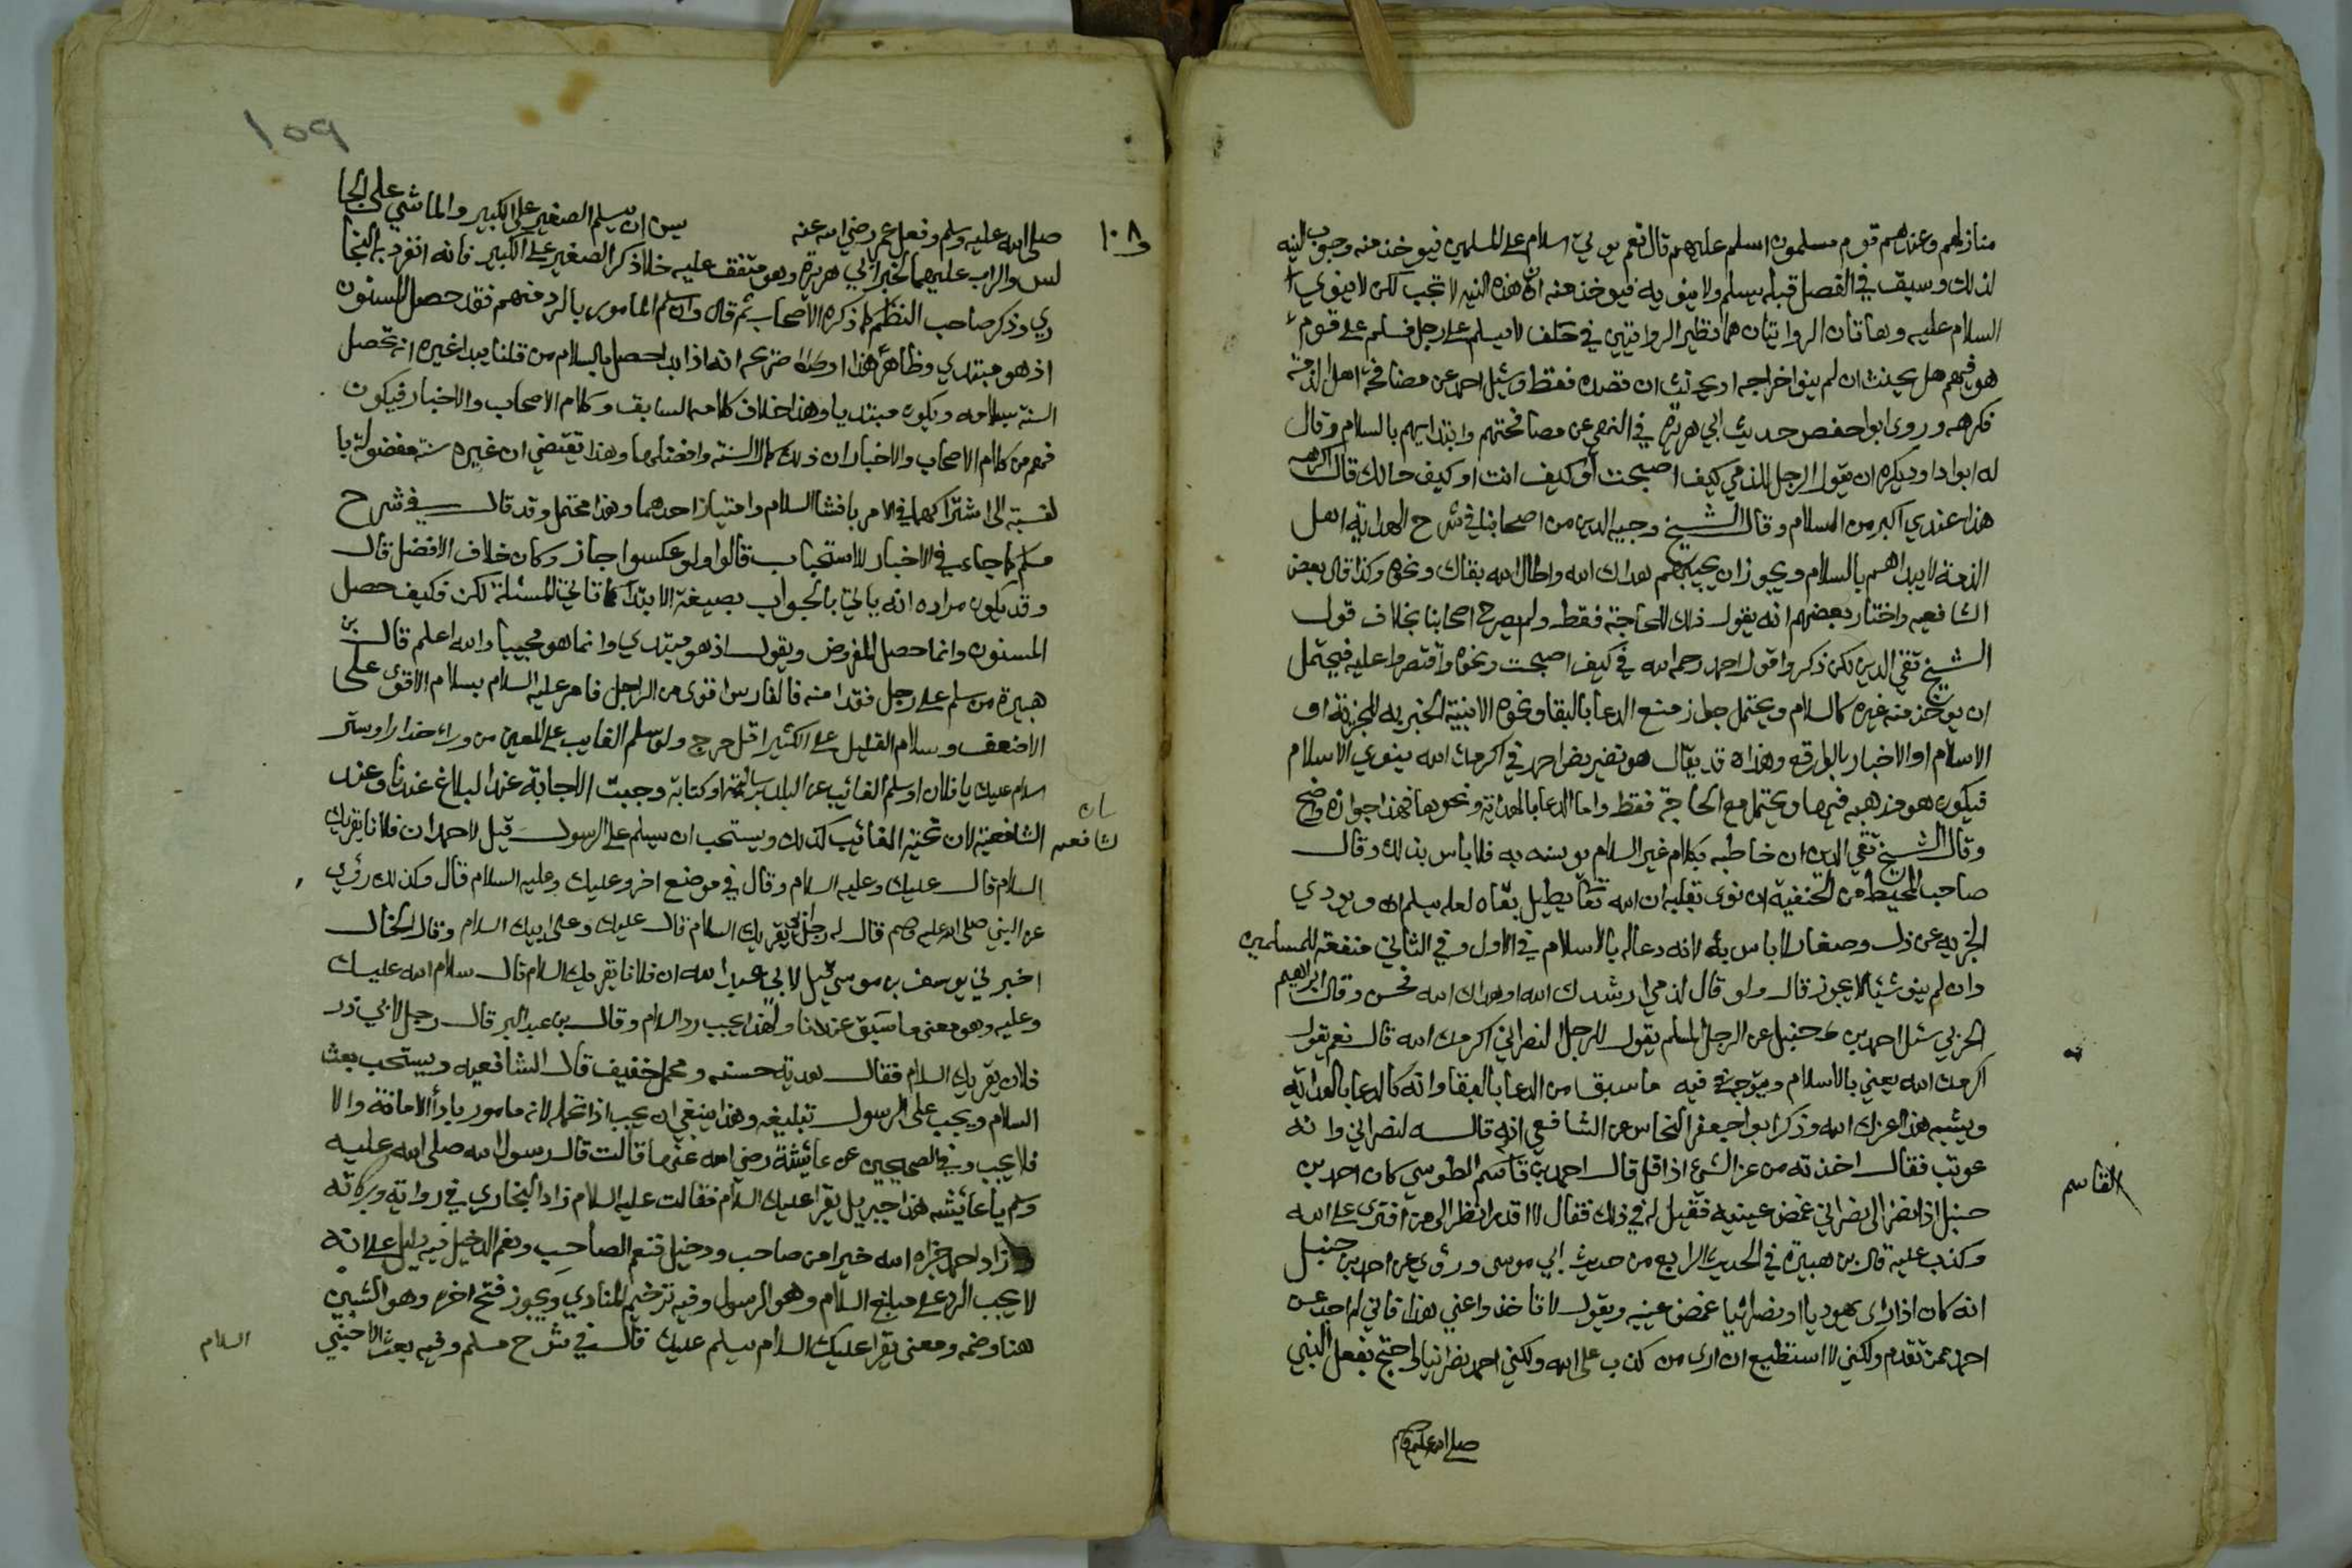 منازلهم وعندهم قوم مسلمون اسلم عليهم قال نعم نوي السلام على المسلمين فيؤخذ منه وجوب النيه
لذلك وسبق في الفصل قبله يسلم ولا ينويه فيوخذ منه ان هذه النيه لا تجب لكن لا ينوي
السلام عليه وهاتان الروايتان هما نظير الروايتين في حلف لا يسلم على رجل فسلم على قوم
هو فيهم هل يحنث ان لم ينو اخراجه او يحنث ان قصده فقط وسئل احمد عن مصافحة اهل الذمة
فكرهه وروى ابوا حفص حديث ابي هريرة في النهي عن مصافحتهم وابتدايهم بالسلام وقال
له ابوا داود يكره ان يقول الرجل للذمي كيف اصبحت او كيف انت او كيف حالك قال اكرهه
هذا عندي اكبر من السلام وقال الشيخ وجيه الدين من اصحابنا في شرح الهداية اهل
الذمة لا يبداهم بالسلام ويجوز ان يجيبهم هداك الله واطال الله بقاك ونحوه وكذا قال بعض
الشافعيه واختار بعضهم انه يقول ذلك للحاجة فقط ولم يصرح اصحابنا بخلاف قول
الشيخ تقي الدين لكن ذكروا قول احمد رحمه الله في كيف اصبحت ونحوه واقتصروا عليه فيحتمل
ان يوخذ منه غيره كالسلام ويحتمل جواز منع الدعا بالبقا ونحوه الا بنية الخبريه الجزية او
الاسلام او الاخبار بالواقع وهذا قد يقال هو نص احمد في اكرمك الله ينوي الاسلام
فيكون هو مذهبه فيها ويحتمل مع الحاجة فقط واما الدعا بالهداية ونحوها فهذا جوازه واضح
وقال الشيخ تقي الدين ان خاطبه بكلام غير السلام يونسه به فلا باس بذلك وقال
صاحب المحيط من الحنفية ان نوى بقلبه ان الله تعا يطيل بقاه لعله يسلم او يودي
الجزيه عن ذل وصغار لا باس به لانه دعا له بالاسلام في الاول وفي الثاني منفعة للمسلمين
وان لم ينو شيئا لا يجوز قال ولو قال لذمي ارشدك الله او هداك الله فحسن وقال ابراهيم
الحربي سئل احمد بن حنبل عن الرجل المسلم يقول للرجل النصراني اكرمك الله قال نعم يقول
اكرمك الله يعني بالاسلام ويتوجه فيه ما سبق من الدعا بالبقا وانه كالدعا بالهداية
ويشبه هذا اعزك الله وذكر ابوا جعفر النحاس عن الشافعي انه قاله لنصراني وانه
عوتب فقال اخذته من عز الشي اذا قل قال احمد بن قاسم الطوسي كان احمد بن
القاسم
حنبل اذا نظر الى نصراني غمض عينيه فقيل له في ذلك فقال لا اقدر انظر الى من افترى على الله
وكذب عليه قال بن هبيرة في الحديث الرابع من حديث ابي موسى وروي عن احمد بن حنبل
انه كان اذا راى يهوديا او نصرانيا غمض عينيه ويقول لا تاخذوا عني هذا فاني لم اجده عن
احد ممن تقدم ولكني لا استطيع ان ارى من كذب على الله ولكني احمد نصرانيا احتج بفعل النبي
صلى الله عليه وسلم
١٠٨
١٥٩
صلى الله عليه وسلم وفعل عمر رضي الله عنه يسن ان يسلم الصغير على الكبير والماشي على الجا
لس والراكب عليهما لخبر ابي هريرة وهو متفق عليه خلا ذكر الصغير على الكبير فانه انفرد به البخا
ري وذكر صاحب النظم كما ذكره الاصحاب ثم قال وان سلم المامور بالرد منهم فقد حصل المسنون
اذ هو مبتدي وظاهر هذا او صريحه انه اذا بدا حصل بالسلام من قلنا يبدا غيره انه تحصل
السنة بسلامه ويكون مبتديا وهذا خلاف كلامه السابق وكلام الاصحاب والاخبار فيكون
فهم من كلام الاصحاب والاخبار ان ذلك كمال السنة وافضلها وهذا يقتضي ان غيره سنة مفضولة با
لنسبة الى اشتراكهما في الامر بافشا السلام وامتياز احدهما وهذا محتمل وقد قال في شرح
مسلم كما جاء في الاخبار للاستحباب قالوا ولو عكسوا جاز وكان خلاف الافضل قال
وقد يكون مراده انه ياتي بالجواب بصيغة الابتدا كما تاتي المسئلة لكن فكيف حصل
المسنون وانما حصل المفروض ويقول اذ هو مبتدي وانما هو مجيبا والله اعلم قال بن
هبيرة من سلم على رجل فقد امنه فالفارس اقوى من الراجل فامر عليه السلام بسلام الاقوى على
الاضعف وسلام القليل على الكثير اقل حرج ولو سلم الغايب على المعين من وراء جدار او ستر
سلام عليك يا فلان او سلم الغائب عن البلد برسالة او كتابة وجبت الاجابة عند البلاغ عندنا وعند
الشافعية لان تحية الغائب كذلك ويستحب ان يسلم على الرسول قيل لاحمد ان فلانا يقريك
الشافعيه
السلام قال عليك وعليه السلام وقال في موضع اخر وعليك وعليه السلام قال وكذلك روي
عن النبي صلى الله عليه وسلم قال له رجل ابي يقريك السلام قال عليك وعلى ابيك السلام وقال الخلال
اخبرني يوسف بن موسى قيل لابي عبد الله ان فلانا يقريك السلام قال سلام الله عليك
وعليه وهو معنى ما سبق عندنا ولهذا يجب رد السلام وقال بن عبد البر قال رجل لابي ذر
فلان يقريك السلام فقال هدية حسنه ومحمل خفيف قال الشافعيه ويستحب بعث
السلام ويجب على الرسول تبليغه وهذا ينبغي ان يجب اذا تحمله لانه مامور باداء الامانة والا
فلا يجب وفي الصحيحين عن عائشة رضي الله عنها قالت قال رسول الله صلى الله عليه
وسلم يا عائشه هذا جبريل يقرا عليك السلام فقالت عليه السلام زاد البخاري في رواية وبركاته
وزاد احمد جزاه الله خيرا من صاحب ودخيل فنعم الصاحب ونعم الدخيل فيه دليل على انه
لا يجب الرد على مبلغ السلام وهو الرسول وفيه ترخيم المنادي ويجوز فتح اخره وهو الشين
هنا وضمه ومعنى يقرا عليك السلام يسلم عليك قال في شرح مسلم وفيه بعث الاجنبي
السلام